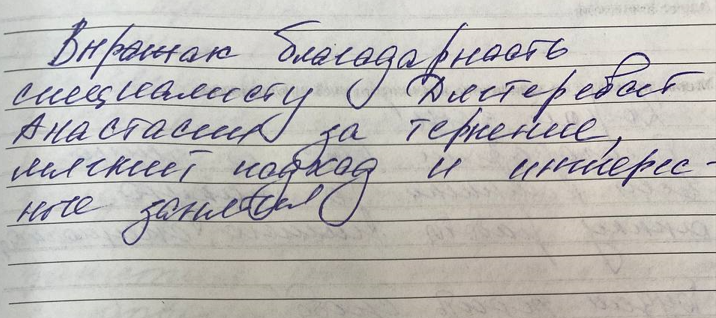 Выражаю благодарность
специалисту
Анастасии за терпение,
мягкий подход и интерес-
ные занятия